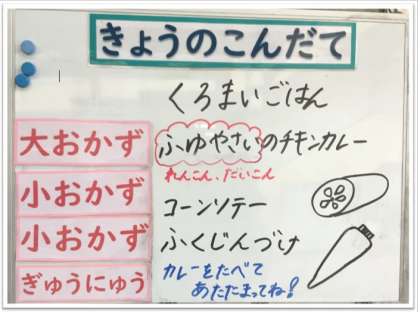 きょうのこんだて
くろまいごはん
大おかず ふゆやさいのチキンカレー
れんこん、だいこん
小おかず コーンソテー
小おかず ふくじんづけ
ぎゅうにゅう カレーをたべて
あたたまってね!